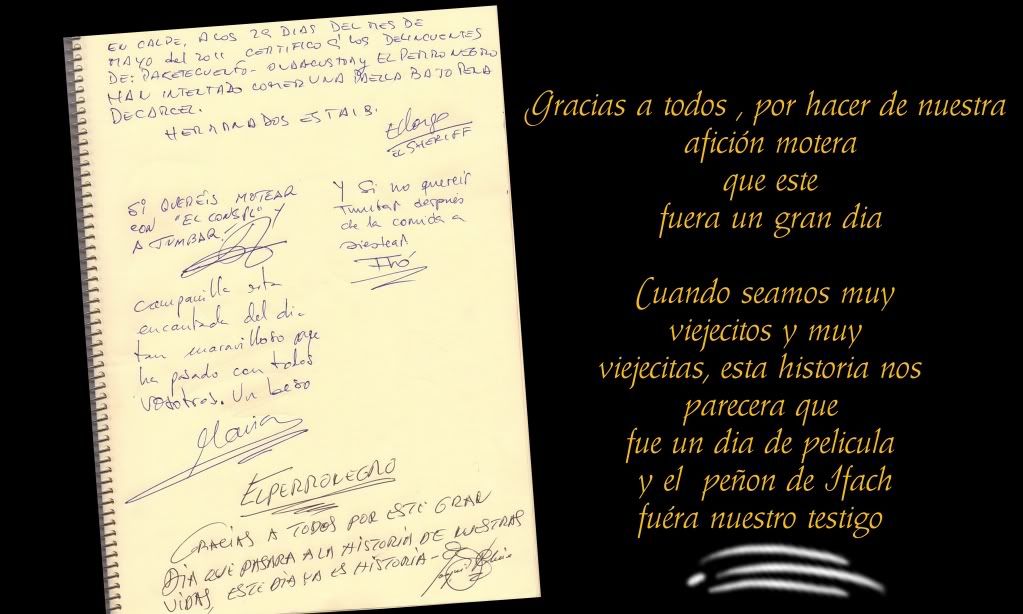 EN CALPE, A LOS 29 DIAS DEL MES DE
MAYO del 2011 CERTIFICO Q' LOS DELINCUENTES
DE: PAKETECUENTO - ONDAGUSTOA Y EL PERRO NEGRO
HAN INTENTADO COMER UNA PAELLA BAJO PENA
DE CARCEL.
HERMANADOS ESTAIS.
EL SHERIFF
SI QUEREIS MOTEAR
CON "EL CONSPI" Y
A TUMBAR!
Y Si no quereis
Tumbar después
de la comida a
siestear
Campanilla esta
encantada del dia
tan maravilloso que
ha pasado con todos
vosotros. Un beso
Maria
EL PERRONEGRO
GRACIAS A TODOS POR ESTE GRAN
DIA QUE PASARA A LA HISTORIA DE NUESTRAS
VIDAS, ESTE DIA YA ES HISTORIA-
Gracias a todos , por hacer de nuestra
afición motera
que este
fuera un gran dia
Cuando seamos muy
viejecitos y muy
viejecitas, esta historia nos
parecera que
fue un dia de pelicula
y el peñon de Ifach
fuéra nuestro testigo